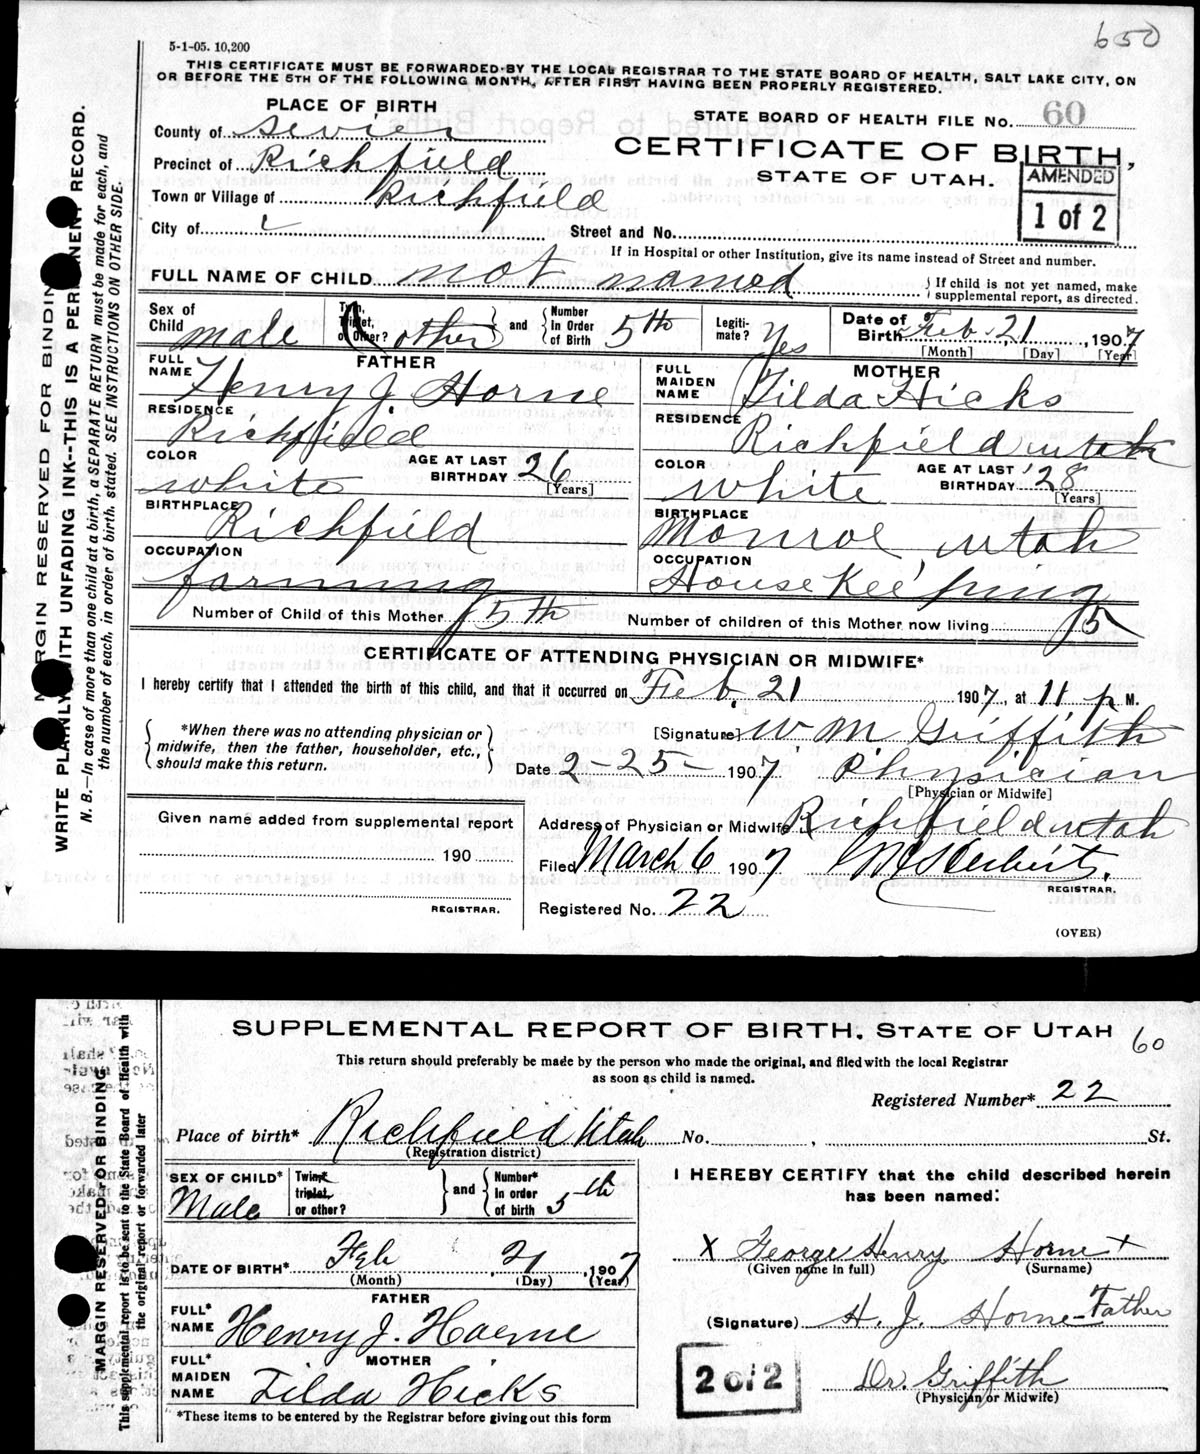 650
5-1-05. 10,200
THIS CERTIFICATE MUST BE FORWARDED BY THE LOCAL REGISTRAR TO THE STATE BOARD OF HEALTH, SALT LAKE CITY, ON
OR BEFORE THE 5TH OF THE FOLLOWING MONTH, AFTER FIRST HAVING BEEN PROPERLY REGISTERED.
PLACE OF BIRTH
STATE BOARD OF HEALTH FILE NO. 60
County of Sevier
CERTIFICATE OF BIRTH,
Precinct of Richfield
STATE OF UTAH.
AMENDED
1 of 2
Town or Village of Richfield
City of
Street and No.
If in Hospital or other Institution, give its name instead of Street and number.
FULL NAME OF CHILD not named
} If child is not yet named, make
supplemental report, as directed.
Sex of Child male
Twin, Triplet, or Other? other } and { Number in Order of Birth 5th
Legitimate? Yes
Date of Birth Feb. 21, 1907
[Month] [Day] [Year]
FATHER
FULL NAME Henry J. Horne
RESIDENCE Richfield
COLOR white
AGE AT LAST BIRTHDAY 26 [Years]
BIRTHPLACE Richfield
OCCUPATION farming
MOTHER
FULL MAIDEN NAME Tilda Hicks
RESIDENCE Richfield utah
COLOR white
AGE AT LAST BIRTHDAY 28 [Years]
BIRTHPLACE Monroe utah
OCCUPATION House Keeping
Number of Child of this Mother 5th
Number of children of this Mother now living 5
CERTIFICATE OF ATTENDING PHYSICIAN OR MIDWIFE*
I hereby certify that I attended the birth of this child, and that it occurred on Feb. 21 1907, at 11 p M.
{ *When there was no attending physician or
midwife, then the father, householder, etc.,
should make this return. }
[Signature] W M Griffith
Date 2-25- 1907 Physician
[Physician or Midwife]
Given name added from supplemental report
190
REGISTRAR.
Address of Physician or Midwife Richfield utah
Filed March 6 1907
REGISTRAR.
Registered No. 22
(OVER)
MARGIN RESERVED FOR BINDING
WRITE PLAINLY WITH UNFADING INK--THIS IS A PERMANENT RECORD.
N. B.—In case of more than one child at a birth, a SEPARATE RETURN must be made for each, and
the number of each, in order of birth, stated. SEE INSTRUCTIONS ON OTHER SIDE.
SUPPLEMENTAL REPORT OF BIRTH, STATE OF UTAH 60
This return should preferably be made by the person who made the original, and filed with the local Registrar
as soon as child is named.
Registered Number* 22
Place of birth* Richfield Utah No. , St.
(Registration district)
SEX OF CHILD* Male
Twin* triplet, or other? } and { Number* in order of birth 5th
DATE OF BIRTH* Feb 21, 1907
(Month) (Day) (Year)
FATHER
FULL* NAME Henry J. Haerne
MOTHER
FULL* MAIDEN NAME Tilda Hicks
*These items to be entered by the Registrar before giving out this form
I HEREBY CERTIFY that the child described herein
has been named:
X George Henry Horne +
(Given name in full) (Surname)
(Signature) H. J. Horne - Father
Dr. Griffith
(Physician or Midwife)
2 of 2
MARGIN RESERVED FOR BINDING
This supplemental report is to be sent to the State Board of Health with
the original report or forwarded later